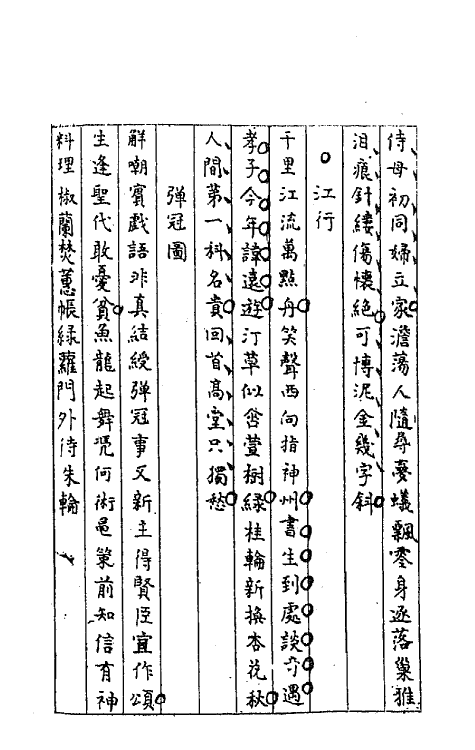 侍母初同婦立家澹蕩人隨尋憂蟻飄零身逐落巢雅
泪痕針縷傷懷絕可博泥金幾字斜
江行
千里江流萬點舟笑聲西向指神州書生到處談奇遇
孝子今年諱遠遊汀草似啓萱樹綠桂輪新換杏花秋
人間第一科名貴回首高堂只獨愁
弾冠圖
觧嘲賓戲語非真結綬弾冠事又新主得賢臣宜作頌
生逢聖代敢憂貧魚龍起舞凭何術黽策前知信有神
料理椒蘭焚蕙帳綠蘿門外待朱輪